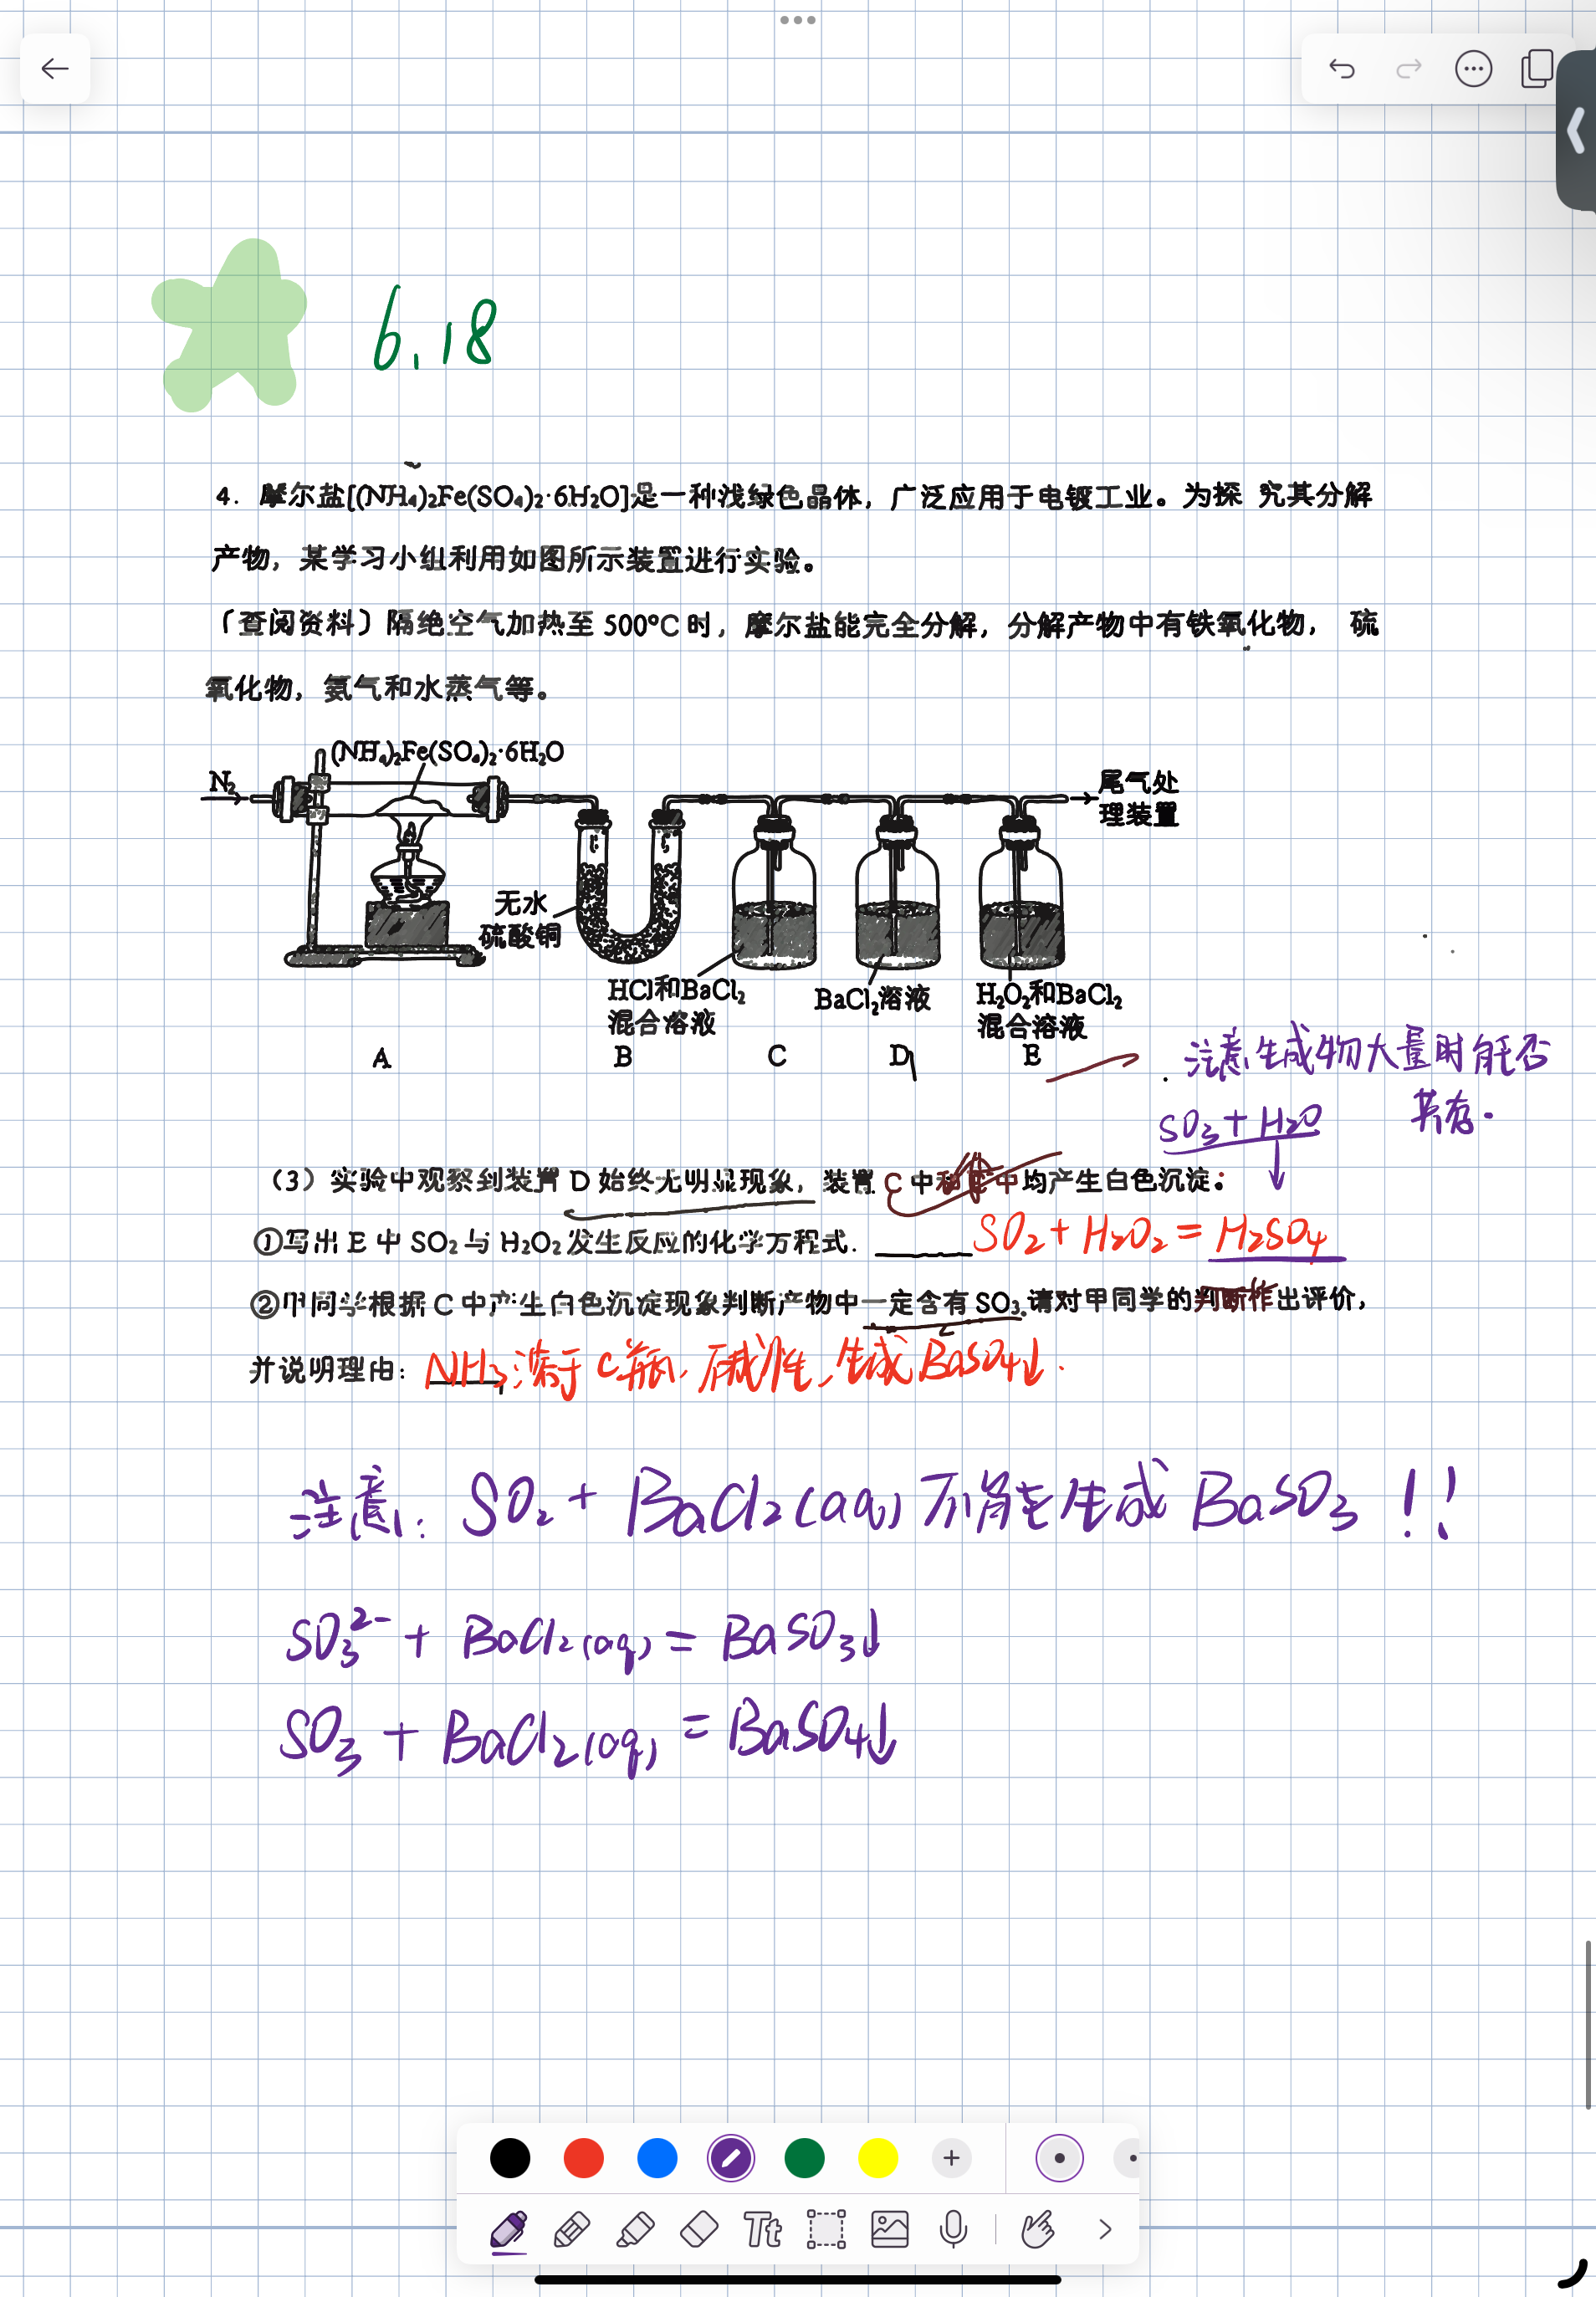 6.18
4. 摩尔盐[(NH₄)₂Fe(SO₄)₂·6H₂O]是一种浅绿色晶体，广泛应用于电镀工业。为探 究其分解
产物，某学习小组利用如图所示装置进行实验。
〔查阅资料〕隔绝空气加热至 500°C 时，摩尔盐能完全分解，分解产物中有铁氧化物， 硫
氧化物，氨气和水蒸气等。
(NH₄)₂Fe(SO₄)₂·6H₂O
N₂
尾气处
理装置
无水
硫酸铜
HCl和BaCl₂
混合溶液
BaCl₂溶液
H₂O₂和BaCl₂
混合溶液
A B C D E
注意生成物大量时能否
共存.
SO₃+H₂O
↓
（3）实验中观察到装置 D 始终无明显现象，装置 C 中和 E 中均产生白色沉淀。
①写出 E 中 SO₂ 与 H₂O₂ 发生反应的化学方程式. SO₂+H₂O₂=H₂SO₄
②甲同学根据 C 中产生白色沉淀现象判断产物中一定含有 SO₃.请对甲同学的判断作出评价，
并说明理由: NH₃溶于C瓶,碱性,生成BaSO₄↓.
注意: SO₂+BaCl₂(aq)不能生成BaSO₃!!
SO₃²⁻+BaCl₂(aq)=BaSO₃↓
SO₃+BaCl₂(aq)=BaSO₄↓
Tt